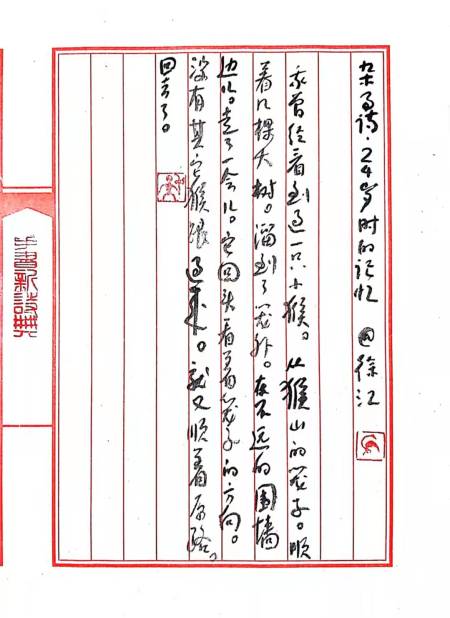 杂事诗·24岁时的记忆 徐江
我曾经看到过一只小猴。从猴山的笼子。顺
着几棵大树。溜到了笼外。在不远的围墙
边儿。走了一会儿。它回头看着笼子的方向。
没有其它猴跟过来。就又顺着原路。
回去了。
新诗典